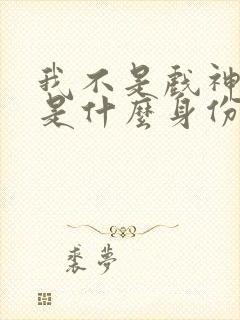 我不是戲神
是什麼身份
裘夢